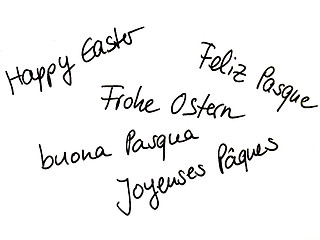 Happy Easter
Feliz Pasque
Frohe Ostern
buona Pasqua
Joyenses Pâques